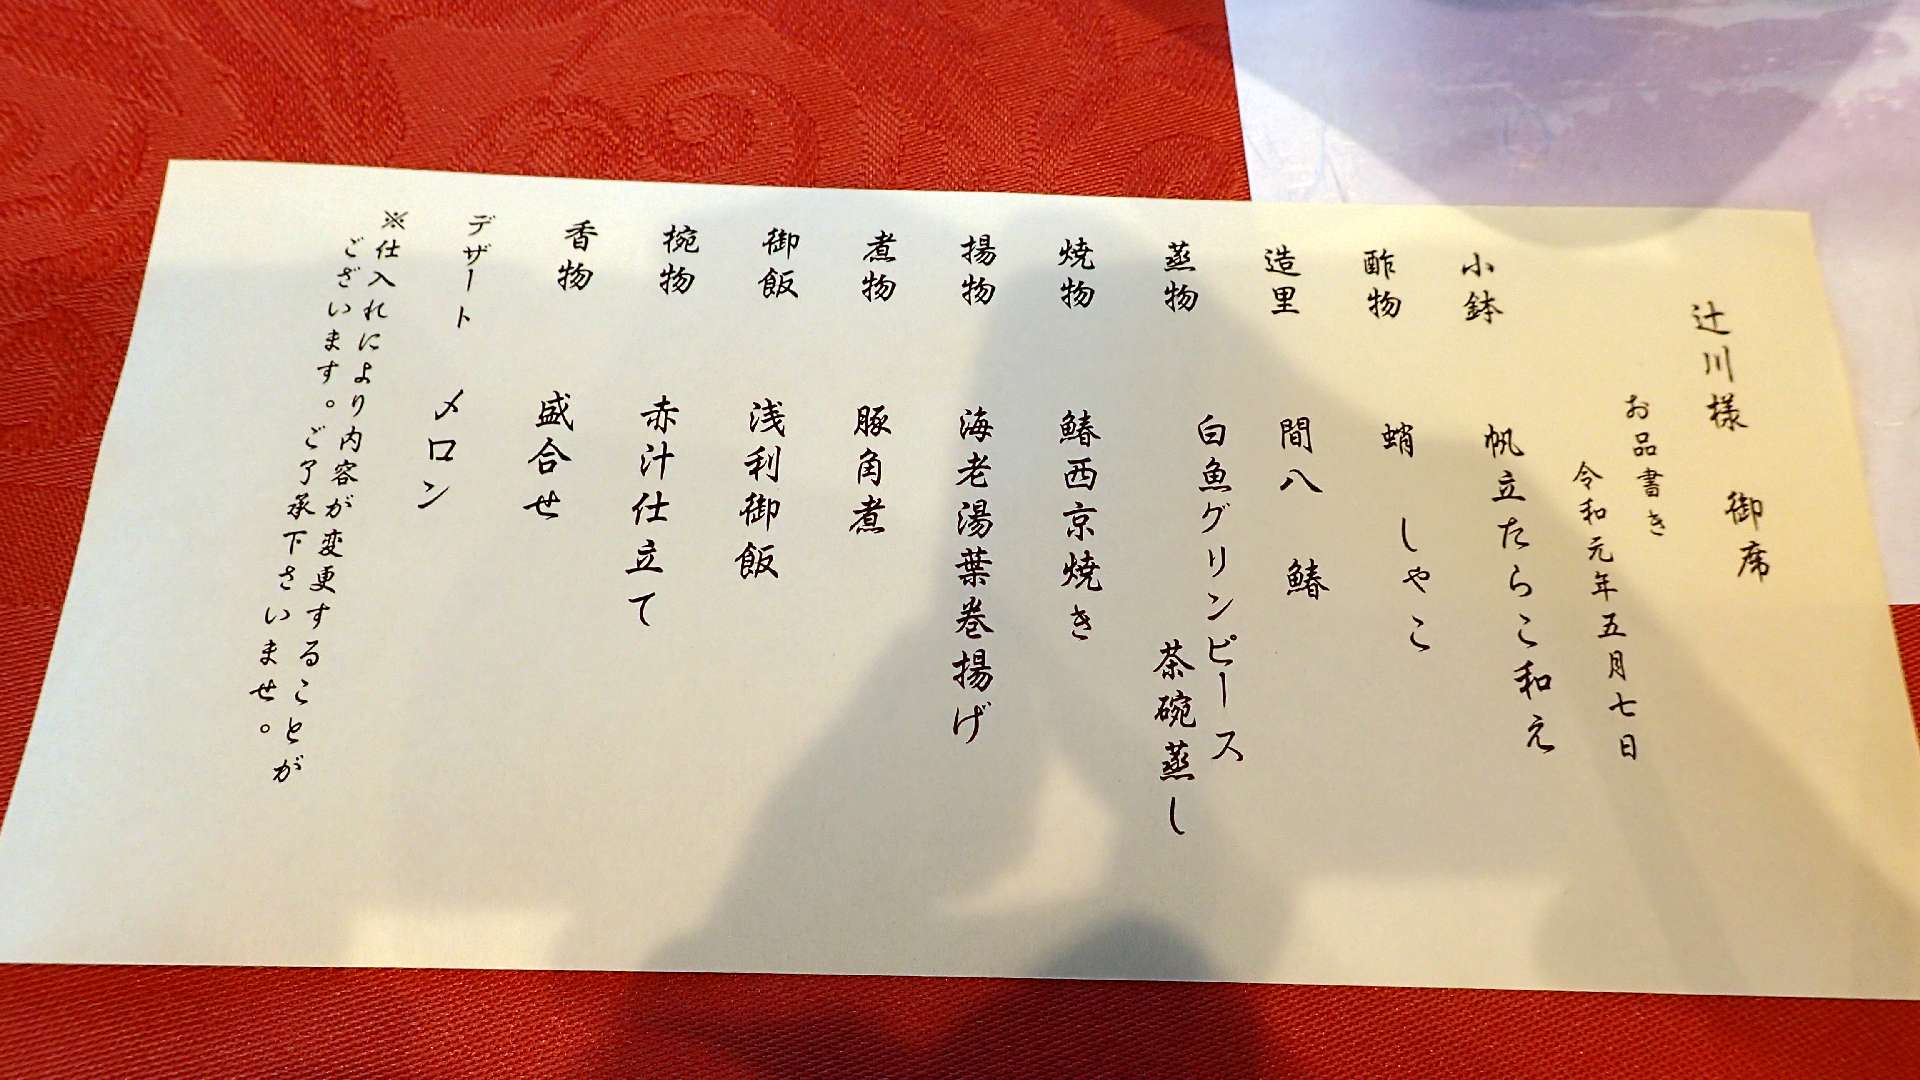 辻川様 御席
お品書き
令和元年五月七日
小鉢 帆立たらこ和え
酢物 蛸 しゃこ
造里 間八 鰆
蒸物 白魚グリンピース
茶碗蒸し
焼物 鰆西京焼き
揚物 海老湯葉巻揚げ
煮物 豚角煮
御飯 浅利御飯
椀物 赤汁仕立て
香物 盛合せ
デザート メロン
※仕入れにより内容が変更することが
ございます。ご了承下さいませ。